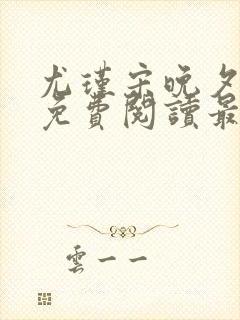 尤瑾宋晚夕
免費閱讀最
雲一一